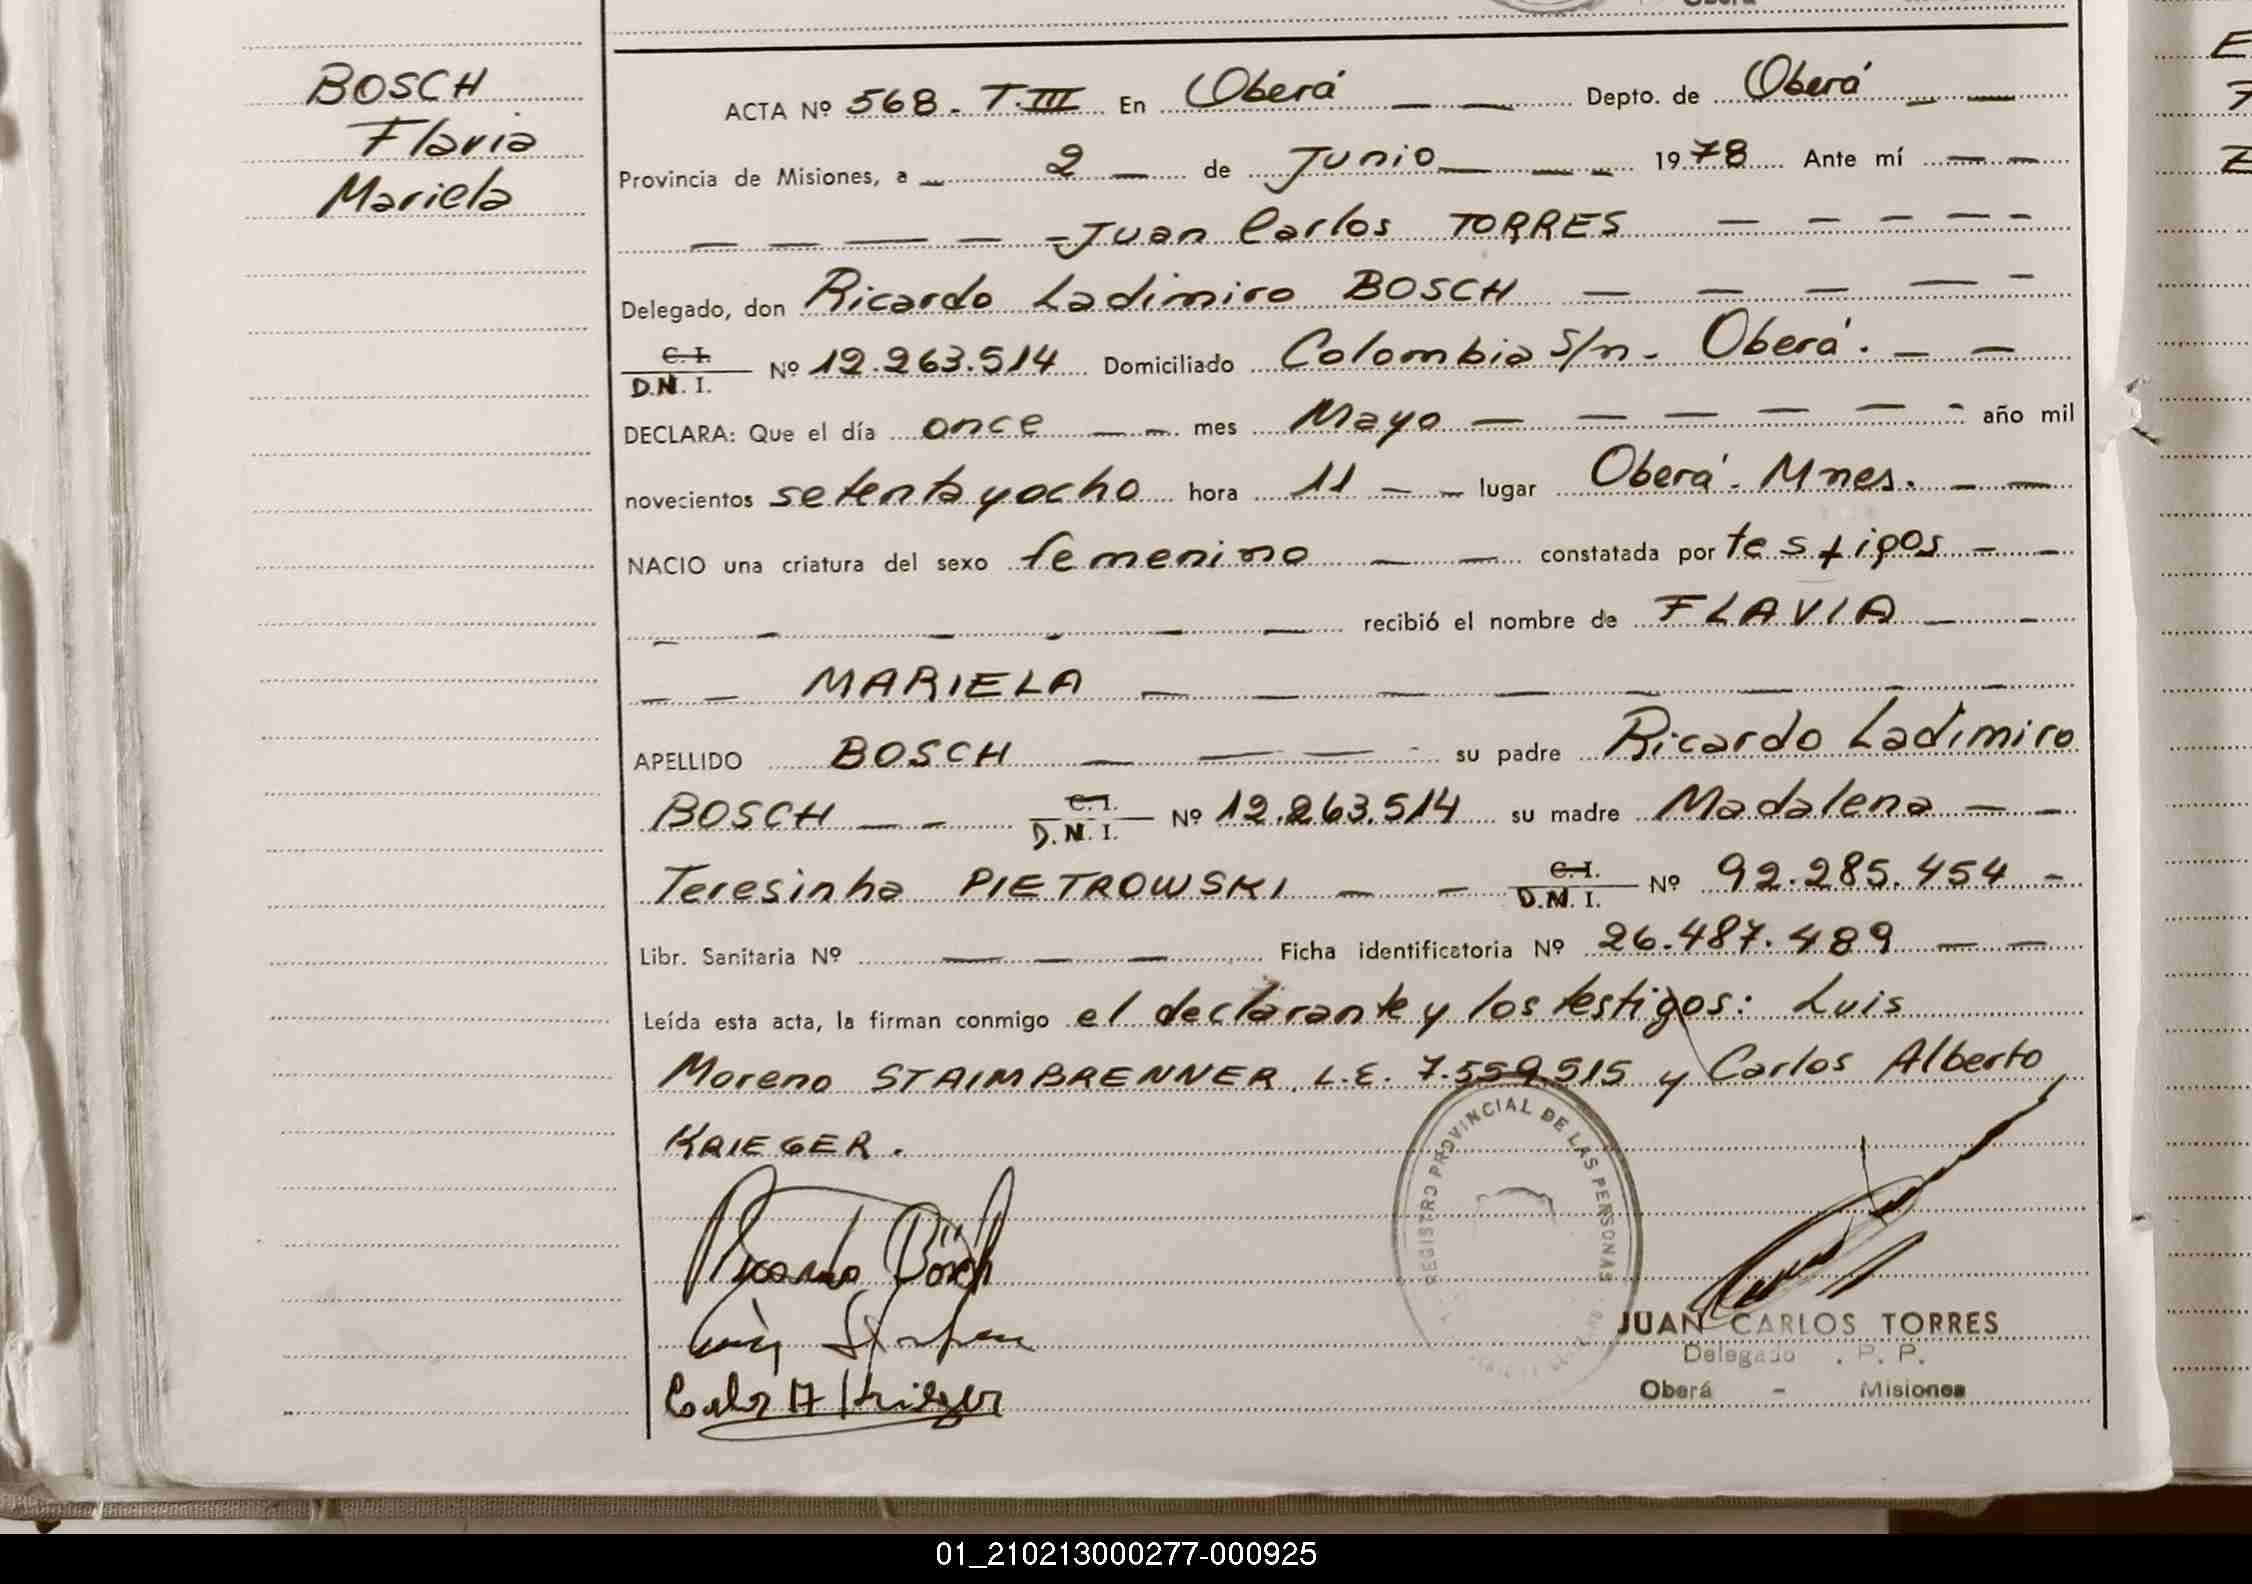 BOSCH
Flavia
Mariela
ACTA Nº 568. T.III En Oberá Depto. de Oberá
Provincia de Misiones, a 2 de Junio 1978 Ante mí
Juan Carlos TORRES
Delegado, don Ricardo Ladimiro BOSCH
C. I. D.N.I. Nº 12.263.514 Domiciliado Colombia s/n. Oberá.
DECLARA: Que el día once mes Mayo año mil
novecientos setenta y ocho hora 11 lugar Oberá. Mnes.
NACIO una criatura del sexo femenino constatada por testigos
recibió el nombre de FLAVIA
MARIELA
APELLIDO BOSCH su padre Ricardo Ladimiro
BOSCH C. I. D.N.I. Nº 12.263.514 su madre Madalena
Teresinha PIETROWSKI C. I. D.N.I. Nº 92.285.454
Libr. Sanitaria Nº Ficha identificatoria Nº 26.487.489
Leída esta acta, la firman conmigo el declarante y los testigos: Luis
Moreno STAIMBRENNER L.E. 7.559.515 y Carlos Alberto
KRIEGER.
REGISTRO PROVINCIAL DE LAS PERSONAS
Ricardo Bösch
Carlos A Krieger
JUAN CARLOS TORRES
Delegado . P. P.
Oberá - Misiones
01_210213000277-000925